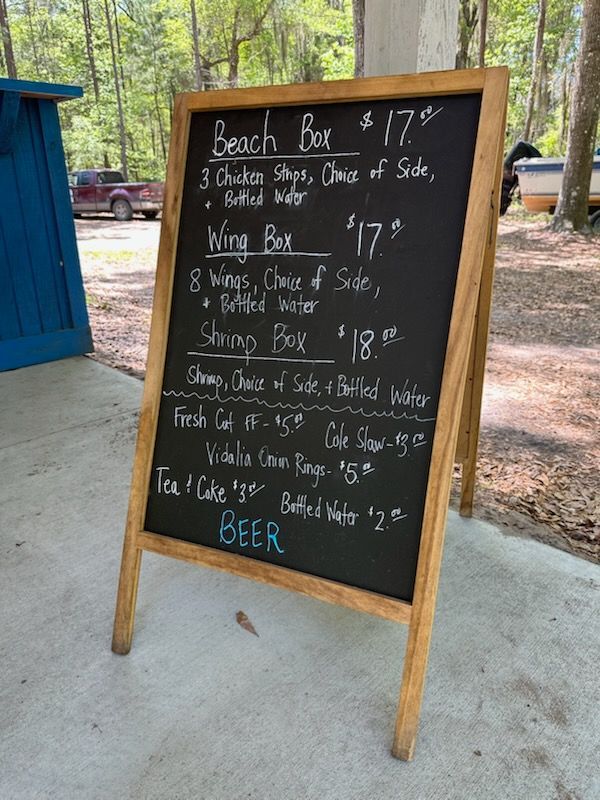 Beach Box $17.00
3 Chicken Strips, Choice of Side,
+ Bottled Water
Wing Box $17.00
8 Wings, Choice of Side,
+ Bottled Water
Shrimp Box $18.00
Shrimp, Choice of Side, + Bottled Water
Fresh Cut FF - $5.00
Cole Slaw - $3.50
Vidalia Onion Rings - $5.00
Tea & Coke $3.00
Bottled Water $2.00
BEER